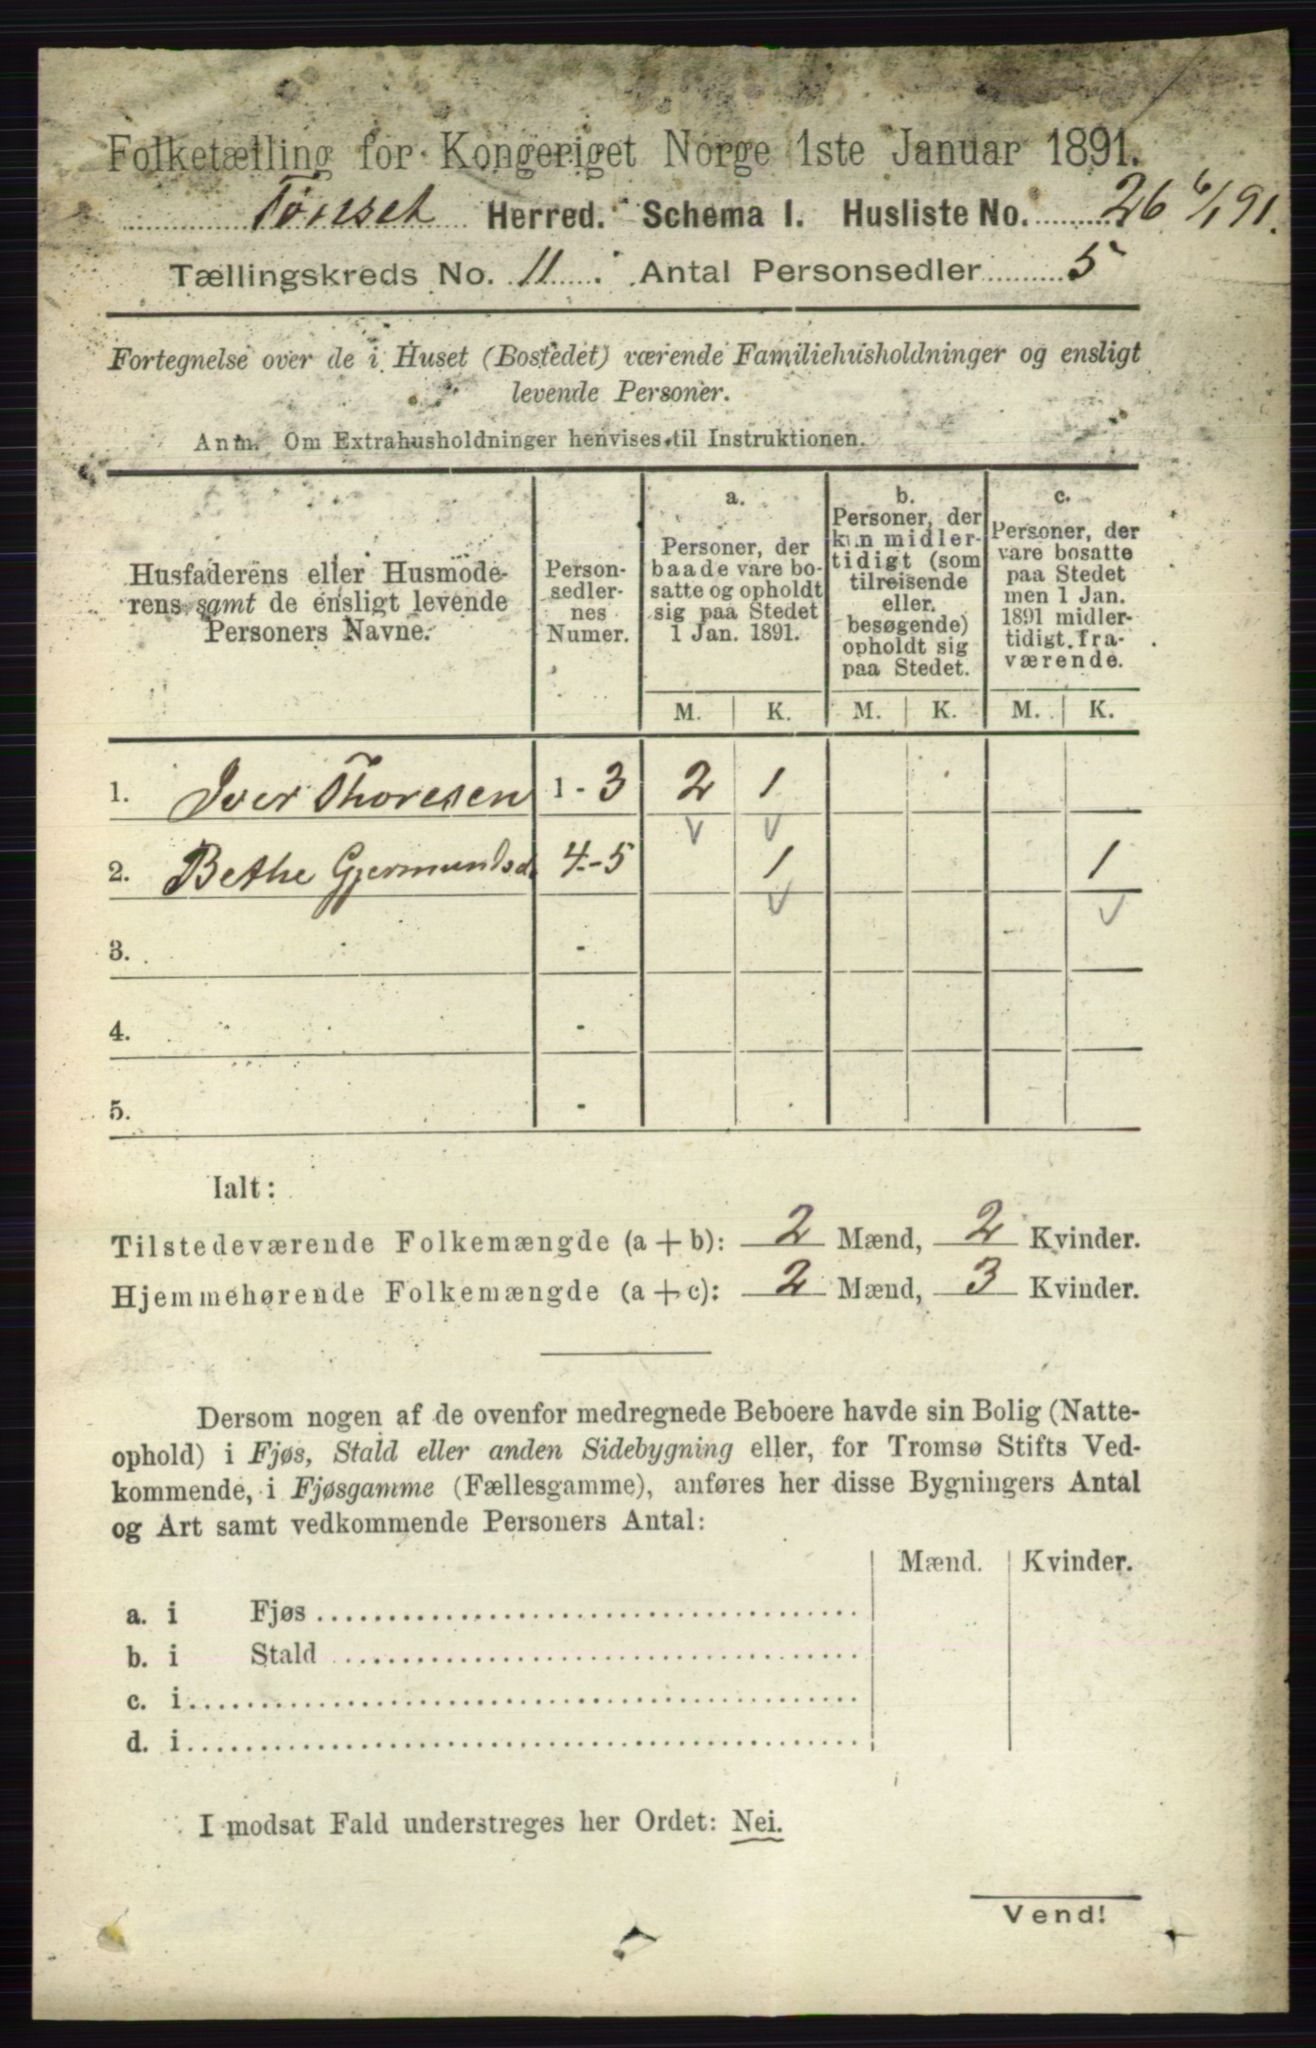 Folketælling for Kongeriget Norge 1ste Januar 1891.
Tønset Herred. Schema I. Husliste No. 26 6/1 91.
Tællingskreds No. 11. Antal Personsedler 5
Fortegnelse over de i Huset (Bostedet) værende Familiehusholdninger og ensligt
levende Personer.
Anm. Om Extrahusholdninger henvises til Instruktionen.
Husfaderens eller Husmode-
rens samt de ensligt levende
Personers Navne.
Person-
sedler-
nes
Numer.
a.
Personer, der
baade vare bo-
satte og opholdt
sig paa Stedet
1 Jan. 1891.
b.
Personer, der
kun midler-
tidigt (som
tilreisende
eller
besøgende)
opholdt sig
paa Stedet.
c.
Personer, der
vare bosatte
paa Stedet
men 1 Jan.
1891 midler-
tidigt fra-
værende.
M. K. M. K. M. K.
1. Iver Thoresen 1 - 3 2 1
2. Bethe Gjermundsd. 4 - 5 1 1
3. -
4. -
5. -
Ialt:
Tilstedeværende Folkemængde (a + b): 2 Mænd, 2 Kvinder.
Hjemmehørende Folkemængde (a + c): 2 Mænd, 3 Kvinder.
Dersom nogen af de ovenfor medregnede Beboere havde sin Bolig (Natte-
ophold) i Fjøs, Stald eller anden Sidebygning eller, for Tromsø Stifts Ved-
kommende, i Fjøsgamme (Fællesgamme), anføres her disse Bygningers Antal
og Art samt vedkommende Personers Antal:
Mænd. Kvinder.
a. i Fjøs
b. i Stald
c. i
d. i
I modsat Fald understreges her Ordet: Nei.
Vend!